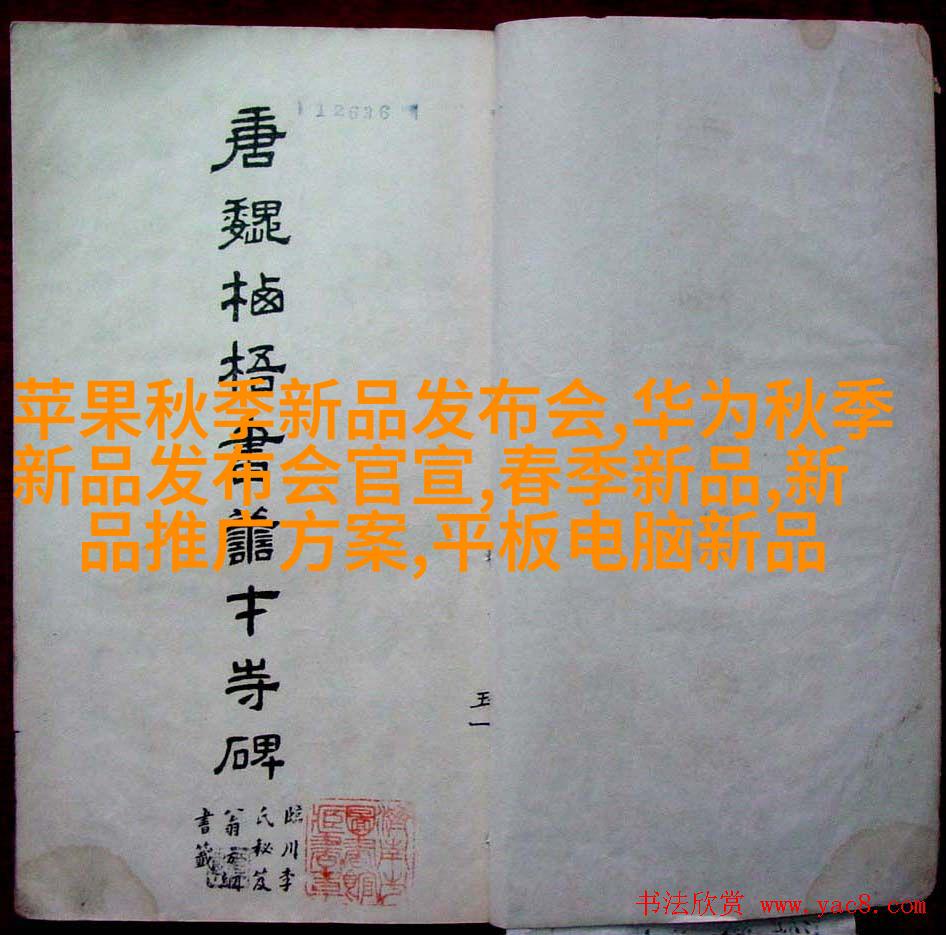 12636
唐魏栖梧書譱才寺碑
苹果秋季新品发布会,华为秋季
新品发布会官宣,春季新品,新
品推广方案,平板电脑新品
臨川李
氏秘笈
翁方綱
書籤
濟南市
圖書館
藏書章
书法欣赏 www.yac8.com